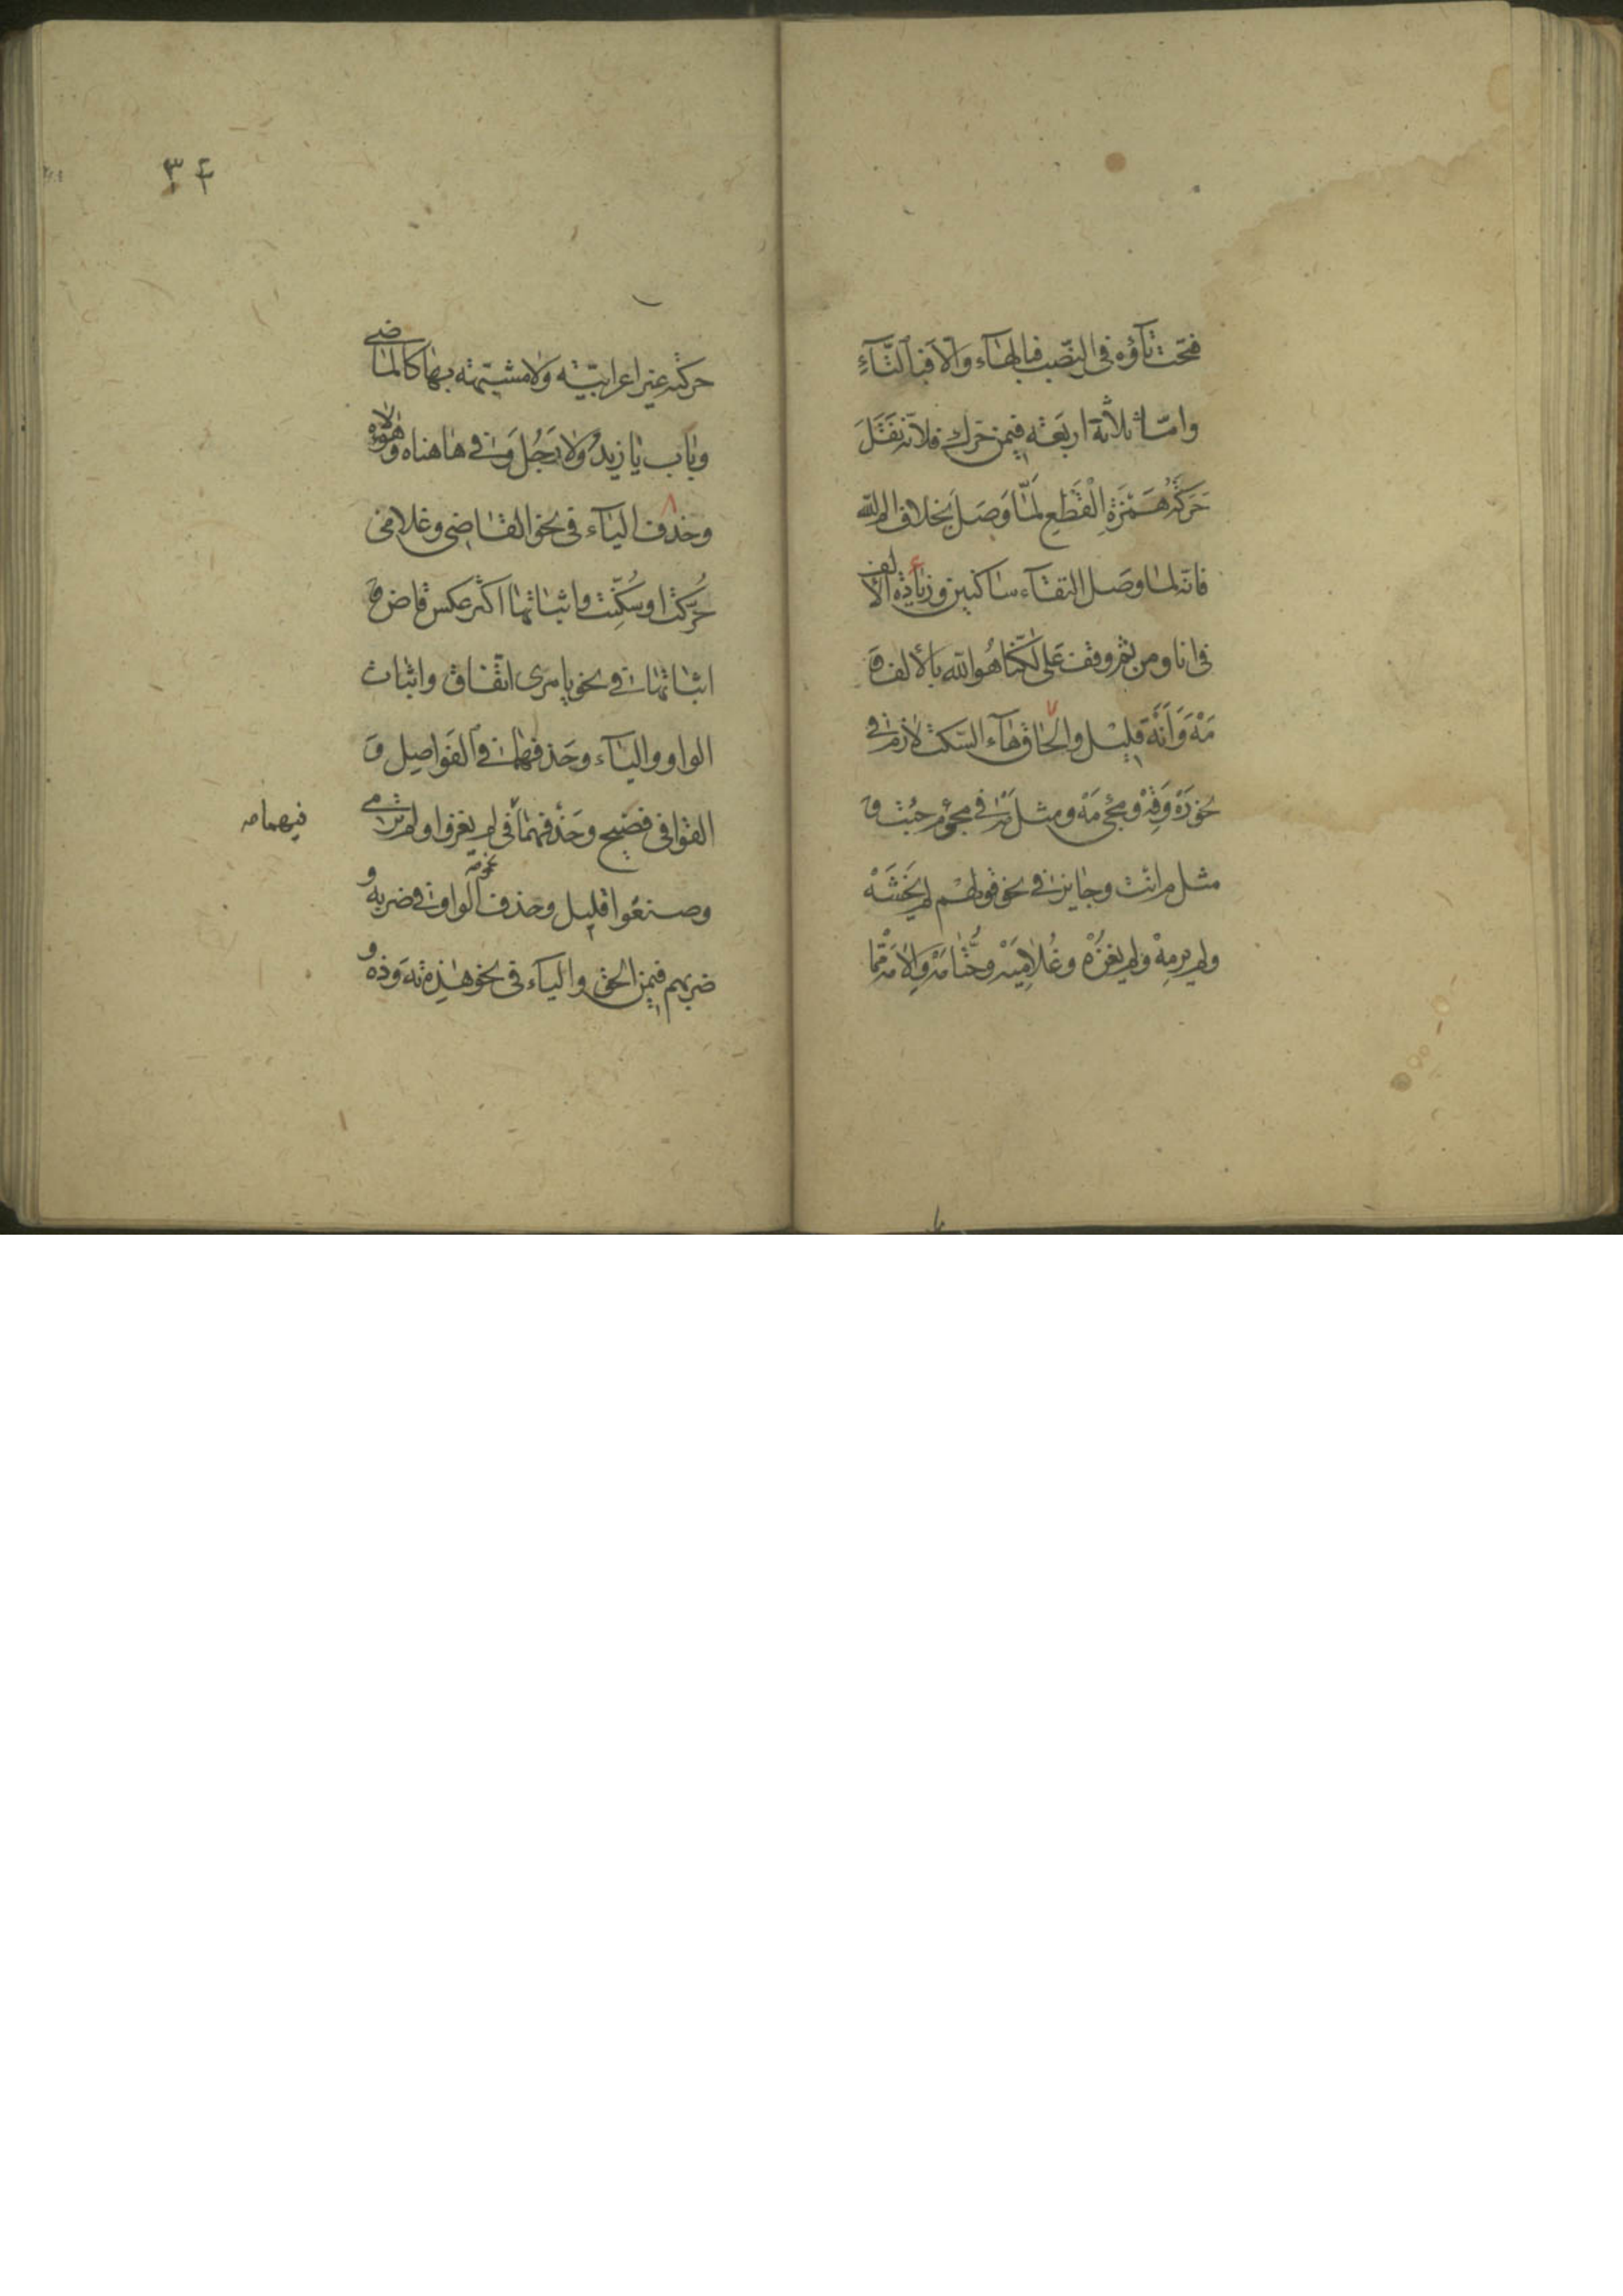 فتحت تاؤه فى النصب فبالهاء والا فبالتاء
واما ثلاثة اربعة فيمن حرك فلانه نقل
حركة همزة القطع لما وصل بخلاف الم الله
فانه لما وصل التقاء ساكنين وزيادة الالف
فى انا ومن ثم وقف على لكنا هو الله بالالف و
مه وانه قليل والحاق هاء السكت لازم فى
نحو ره وقه ومجئ مه ومثل مه فى مجئ م جئت و
مثل م انت وجايز فى نحو قولهم لم يخشه
ولم يرمه ولم يغزه وغلاميه وحتامه والامه مما
٣٤
حركته غير اعرابية ولا مشبهة بها كالماضى
وباب يا زيد ولا رجل وفى هاهناه وهؤلاه
وحذف الياء فى نحو القاضى وغلامى
حركت او سكنت واثباتها اكثر عكس قاض و
اثباتها فى نحو يا مرى اتفاق واثبات
الواو والياء وحذفهما فى الفواصل و
القوافى فصيح وحذفهما فى لم يغزوا ولم ترمى
فيهما
وصنعوا قليل وحذف الواو فى ضربه و
ضربهم فيمن الحق والياء فى نحو هذه ته وذه و